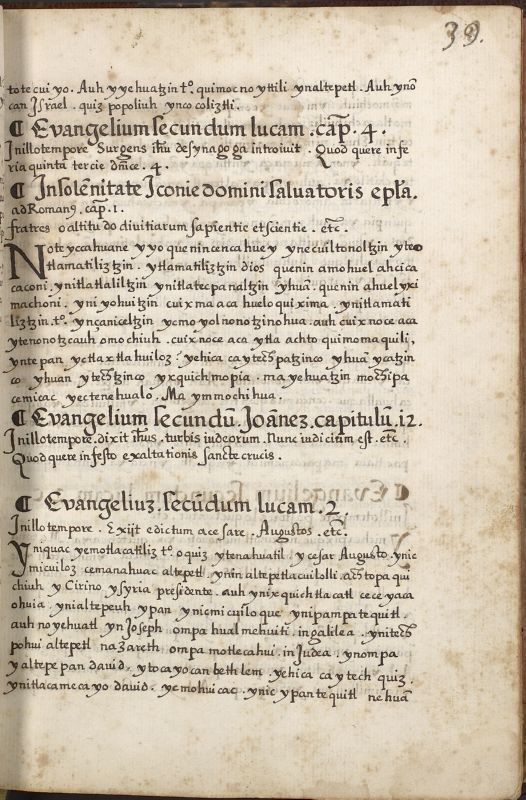 39.
totecuiyo. Auh yyehuatzin tº. quimocnoyttili ynaltepetl. Auh ynõ
can Jsrael. quiz popoliuh ynco coliztli.
¶ Evangelium secundum lucam. cap̃. 4.
Jnillo tempore Surgens iħu de synagoga introiuit. Quod quere infe
ria quinta tercie dñice. 4.
¶ Jn solẽnitate Jconie domini salvatoris epl̃a.
ad Romanꝰ. cap̃. 1.
fratres o altitudo divitiarum sapientie et scientie. etc̃.
Noteyccahuane yyo quenincenca huey ynecuiltonoltzin yteo
tlamatiliztzin. ytlamatiliztzin dios quenin amohuel ahcica
caconi. ynitlatlaliltzin ynitlatecpanaltzin yhuã. quenin ahuel yxi
machoni. yni yohuitzin cuix ma aca huel oquixima. ynitlamati
liztzin. tº. ynçaniceltzin ycmoyolnonotzinohua. auh cuix noce aca
ytenonotzcauh omochiuh. cuix noce aca ytla achto quimomaquili,
yntepan yctlaxtlahuiloz? yehica ca ytech̃patzinco yhuã ycatzin
co yhuan ytech̃tzinco yxquich mopia. ma yehuatzin moch̃ipa
cemicac yectenehualo. Ma ymmochihua.
¶ Evangelium secundũ. Joãnez. capitulũ. 12.
Jnillo tempore. dixit iħus. turbis iudeorum. Nunc iudicium est. etc.
Quod quere in festo exaltationis sancte crucis.
¶ Evangeliuz. secũdum lucam. 2.
Jnillo tempore. Exijt edictum a cesare. Augustos. etc̃.
Yniquac yemotlacatiliz tº oquiz ytenahuatil. ycesar Augusto. ynic
micuiloz cemanahuac altepetl. ynin altepetlacuilolli. ach̃topa qui
chiuh yCirino ySyria presidente. auh ynixquichtlacatl ceceyaca
ohuia. ynialtepeuh ypan ynicmicuiloque ynipampa tequitl.
auh no yehuatl yn Joseph ompa hualmehuiti. in galilea. ynitech̃
pohui altepetl nazareth ompa motlecahui. in Judea. ynompa
yaltepepan david. ytocayocan bethlem. yehica ca ytech quiz.
ynitlacamecayo david. yc mohuicac. ynic ypan tequitl nehuã